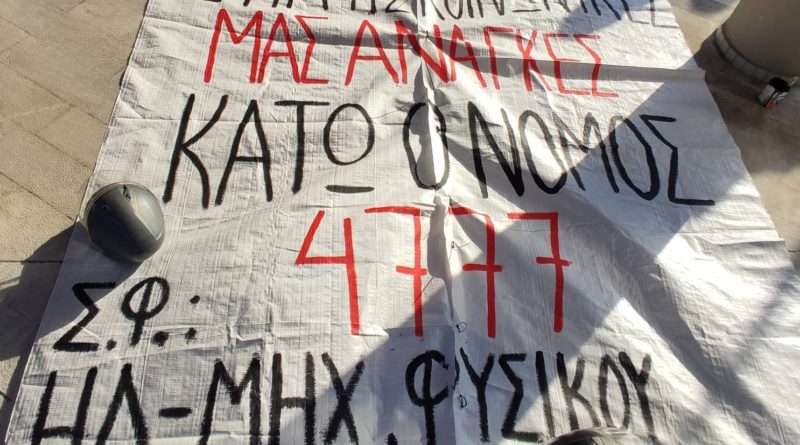 ΚΟΙΝΩΝΙΚΕΣ
ΜΑΣ ΑΝΑΓΚΕΣ
ΚΑΤΩ Ο ΝΟΜΟΣ
4777
Σ.Φ.:
ΗΛ-ΜΗΧ, ΦΥΣΙΚΟΥ